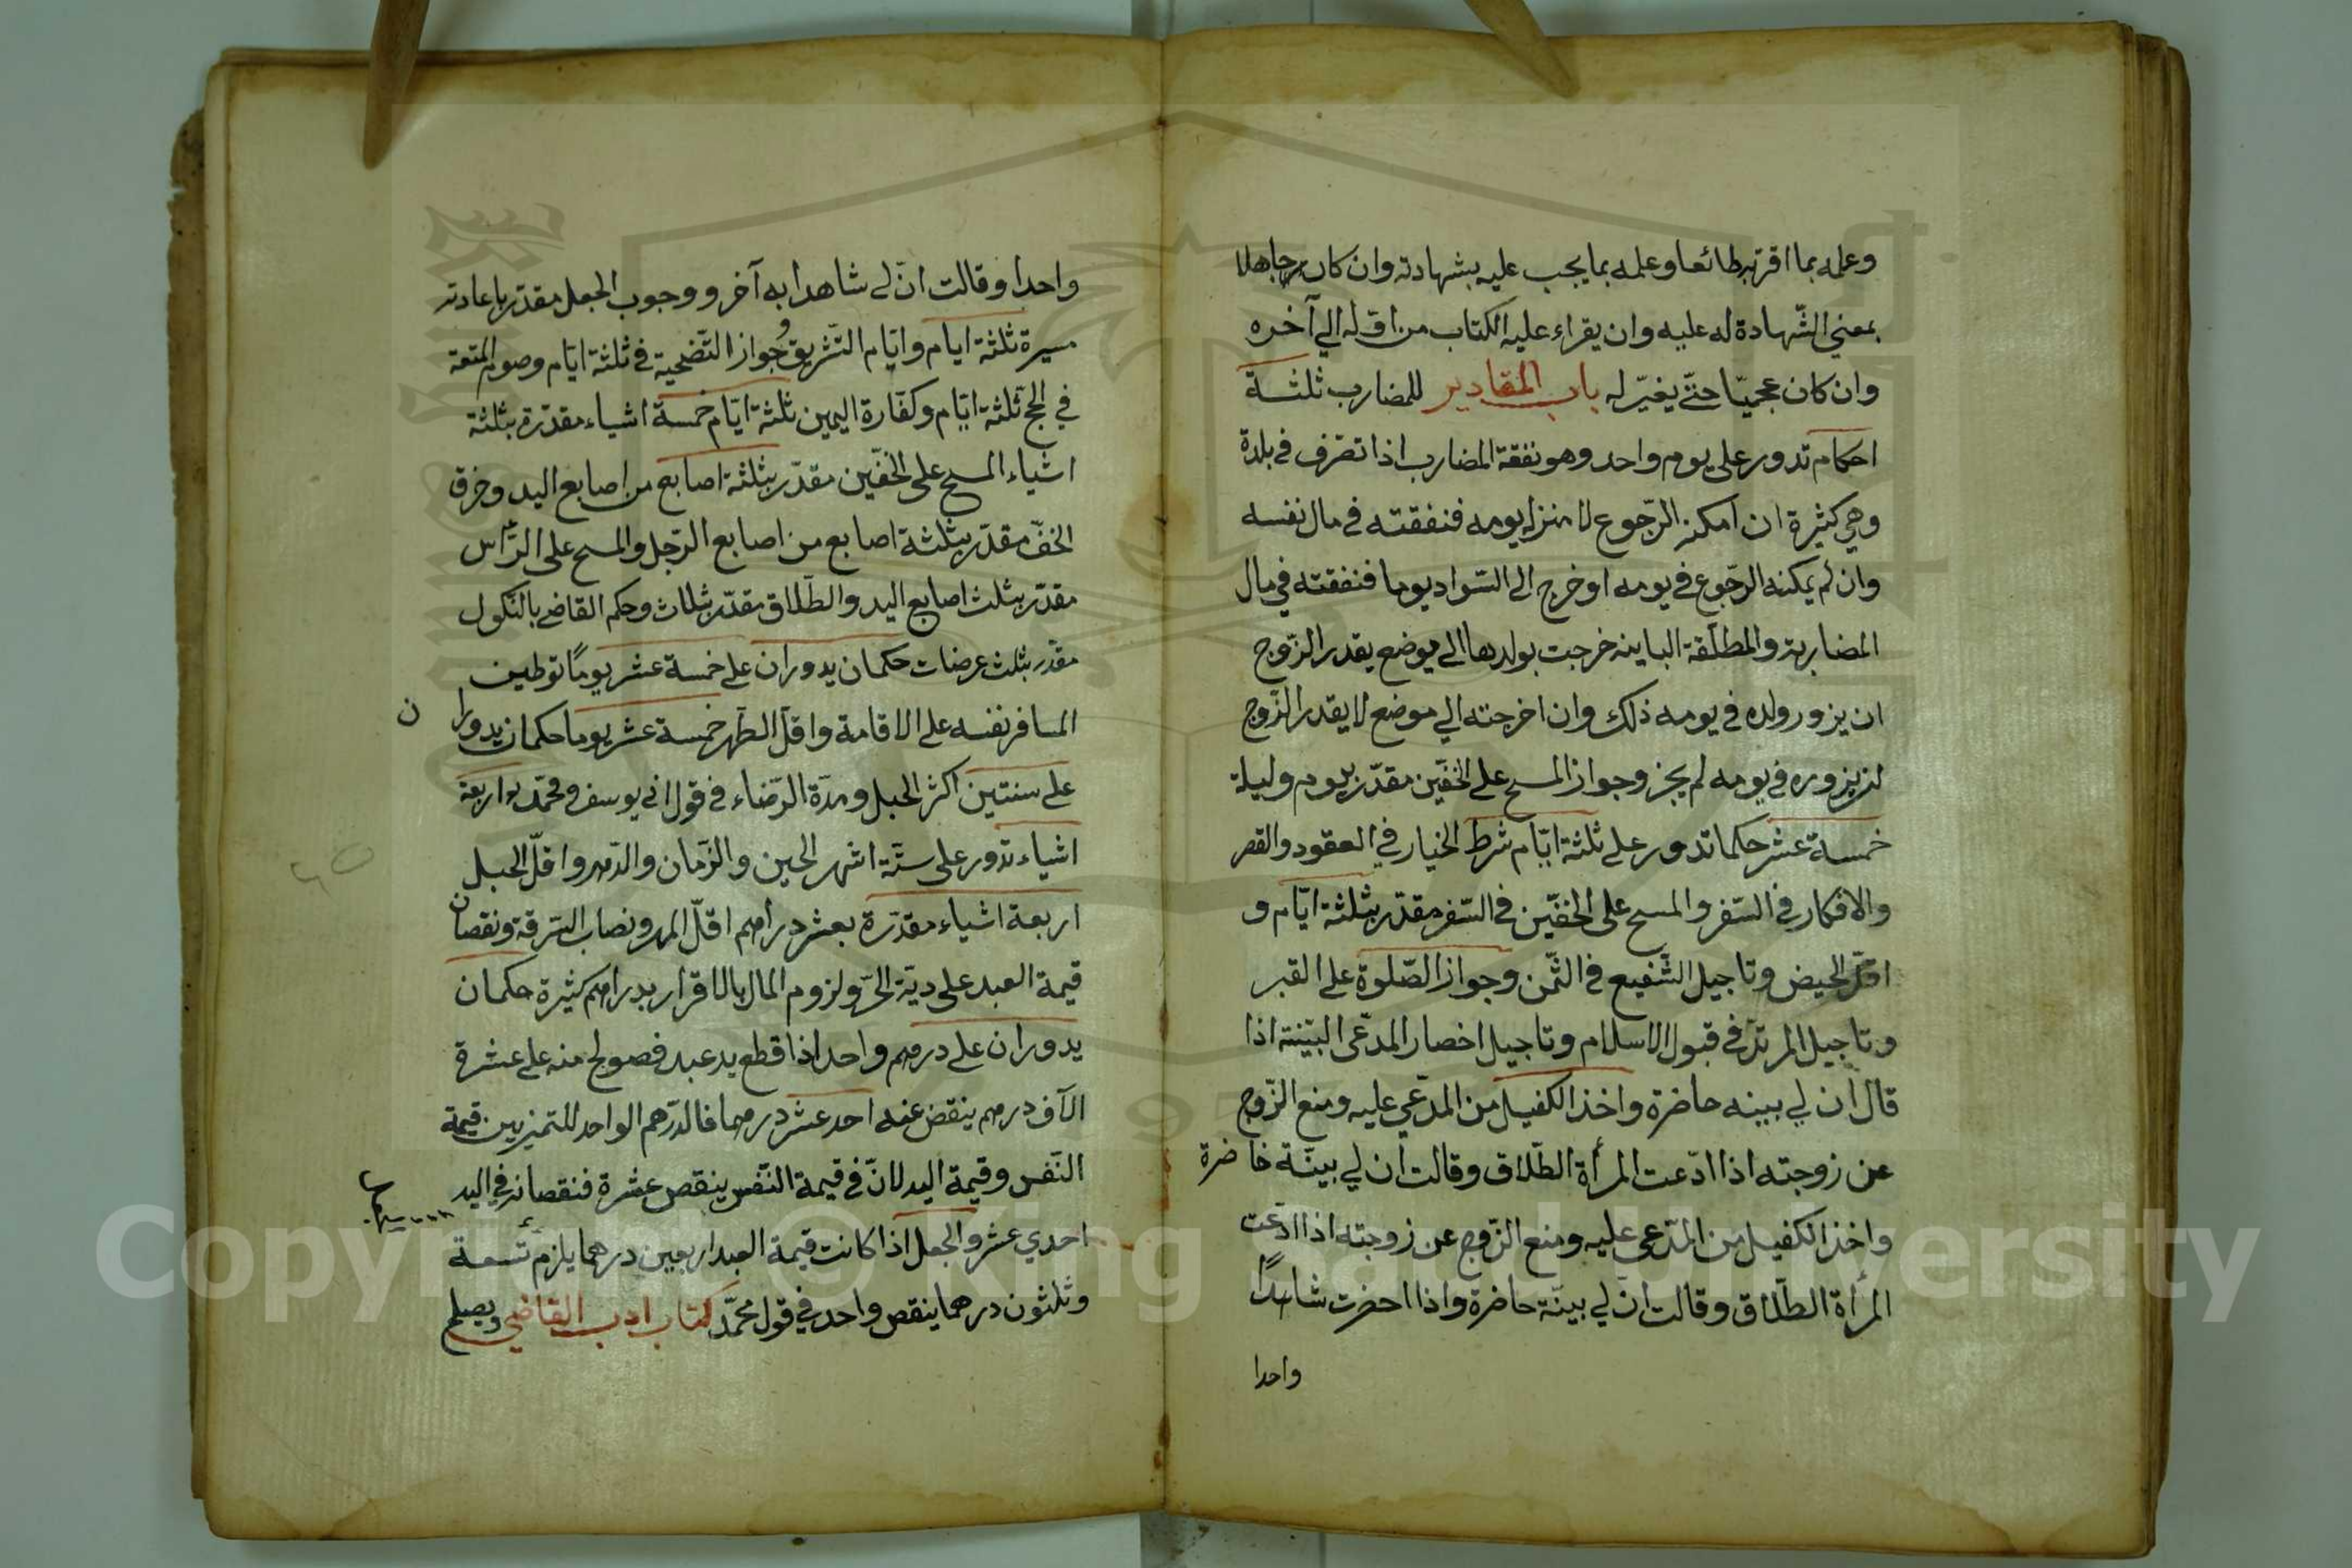 وعلمه بما اقرّ به طائعا وعلمه بما يجب عليه بشهادته وان كان جاهلا
بمعني الشّهادة له عليه وان يقراء عليه الكتاب من اوّله الي آخره
وان كان عجميّا حتّي يغيّر له باب المقادير للمضارب ثلثة
احكام تدور علي يوم واحد وهو نفقة المضارب اذا تصرف في بلدة
وهي كثيرة ان امكنه الرّجوع لا منزله يومه فنفقته في مال نفسه
وان لم يمكنه الرّجوع في يومه او خرج الي السّواد يوما فنفقته في مال
المضاربة والمطلّقة الباينه خرجت بولدها الي موضع يقدر الزّوج
ان يزور ولده في يومه ذلك وان اخرجته الي موضع لا يقدر الزّوج
ان يزوره في يومه لم يجز وجواز المسح علي الخفّين مقدّر بيوم وليلة
خمسة عشر حكما تدور علي ثلثة ايّام شرط الخيار في العقود والقصر
والافطار في السّفر والمسح علي الخفّين في السّفر مقدّر بثلثة ايّام و
اقلّ الحيض وتاجيل الشّفيع في الثّمن وجواز الصّلوة علي القبر
وتاجيل المرتدّ في قبول الاسلام وتاجيل احضار المدّعي البيّنة اذا
قال ان لي بينه حاضرة واخذ الكفيل من المدّعي عليه ومنع الزّوج
عن زوجته اذا ادّعت المرأة الطّلاق وقالت ان لي بيّنة حاضرة
واخذ الكفيل من المدّعي عليه ومنع الزّوج عن زوجته اذا ادّعت
المرأة الطّلاق وقالت انّ لي بيّنة حاضرة واذا احضرت شاهدًا
واحدا
واحدا وقالت انّ لي شاهدا به آخر ووجوب الجعل مقدّر باعادته
مسيرة ثلثة ايام وايّام التّشريق وجواز التّضحية في ثلثة ايّام وصوم المتعة
في الحجّ ثلثة ايّام وكفّارة اليمين ثلثة ايّام خمسة اشياء مقدّرة بثلثة
اشياء المسح علي الخفّين مقدّر بثلثة اصابع من اصابع اليد وخرق
الخفّ مقدّر بثلثة اصابع من اصابع الرّجل والمسح علي الرّأس
مقدّر بثلث اصابع اليد والطّلاق مقدّر بثلاث وحكم القاضي بالنّكول
مقدّر بثلث عرضات حكمان يدوران علي خمسة عشر يومًا توطين
المسافر نفسه علي الاقامة واقلّ الطّهر خمسة عشر يوما حكمان يدوران
علي سنتين اكثر الحبل ومدّة الرّضاء في قول ابي يوسف ومحمّد اربعة
اشياء تدور علي ستّة اشهر الحين والزّمان والدّهر واقلّ الحبل
اربعة اشياء مقدّرة بعشر دراهم اقلّ المهر ونصاب السّرقة ونقصان
قيمة العبد علي ديّة الحرّ ولزوم المال بالاقرار بدراهم كثيرة حكمان
يدوران علي درهم واحد اذا قطع يد عبد فصولح منه علي عشرة
الآف درهم ينقض عنه احد عشر درهما فالدّرهم الواحد للتمييز بين قيمة
النّفس وقيمة اليد لانّ في قيمة النّفس ينقص عشرة فنقصانه في اليد
احدي عشر والجعل اذا كانت قيمة العبد اربعين درهما يلزم تسعة
وثلثون درهما ينقص واحد في قول محمّد كتاب ادب القاضي ويصلح
Copyright © King Saud University